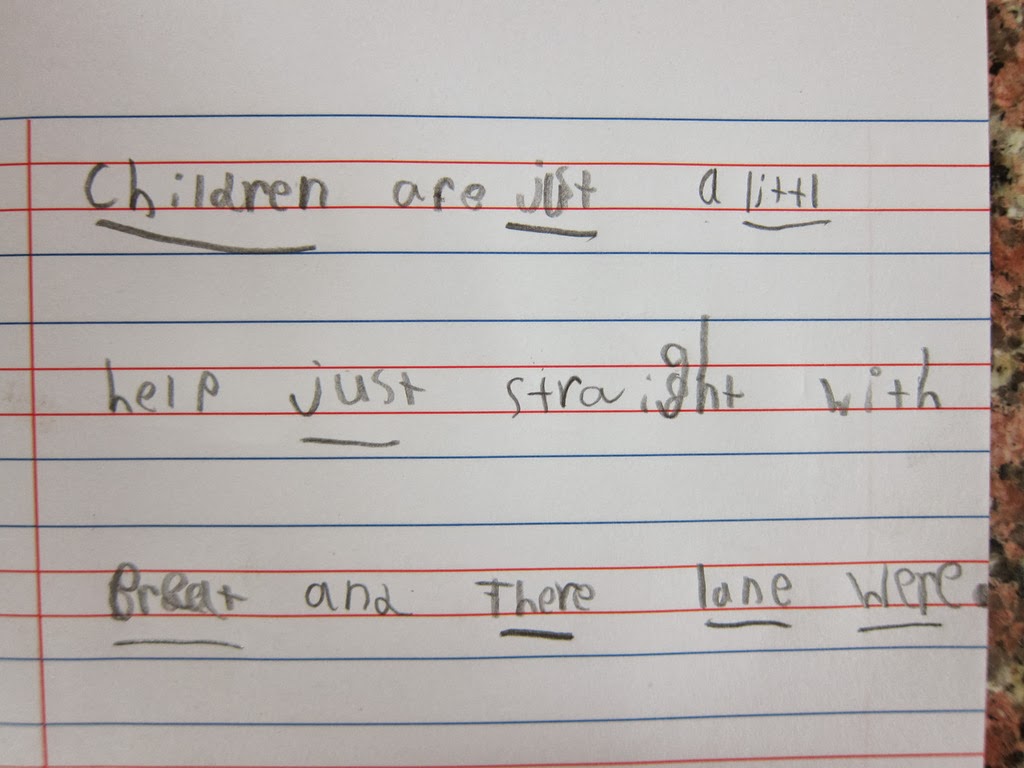 Children are just a littl
help just straight with
Great and There lane were.